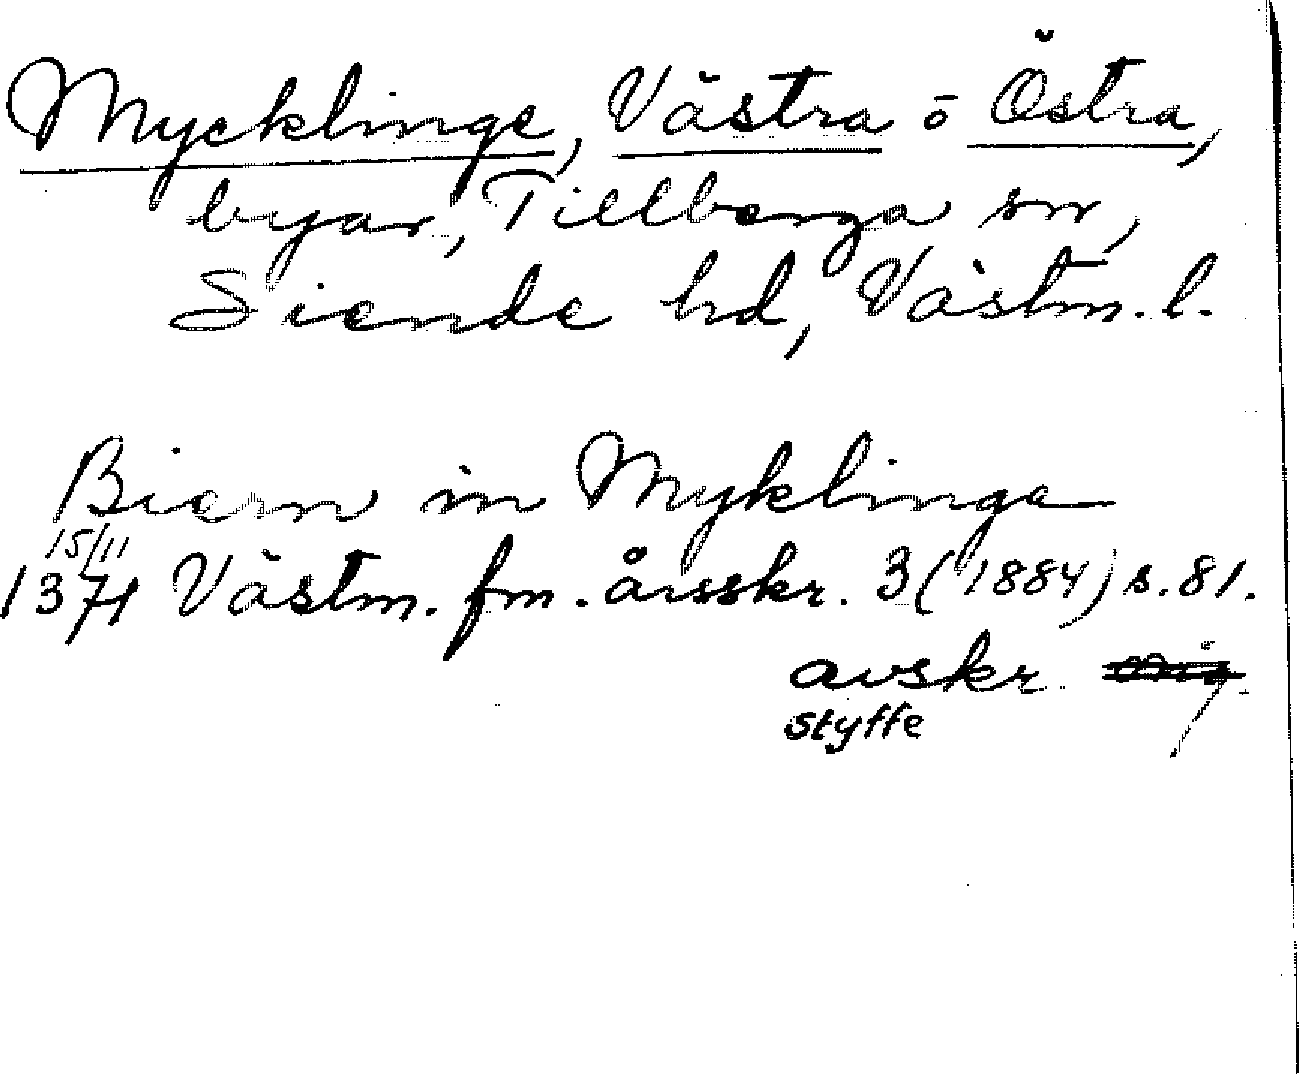 Mycklinge, Västra o Östra,
byar, Tillberga sn,
Siende hd, Västm. l.
Biern in Myklinga
15/11
1371 Västm. fm. årsskr. 3 (1884) s. 81.
avskr.
styffe